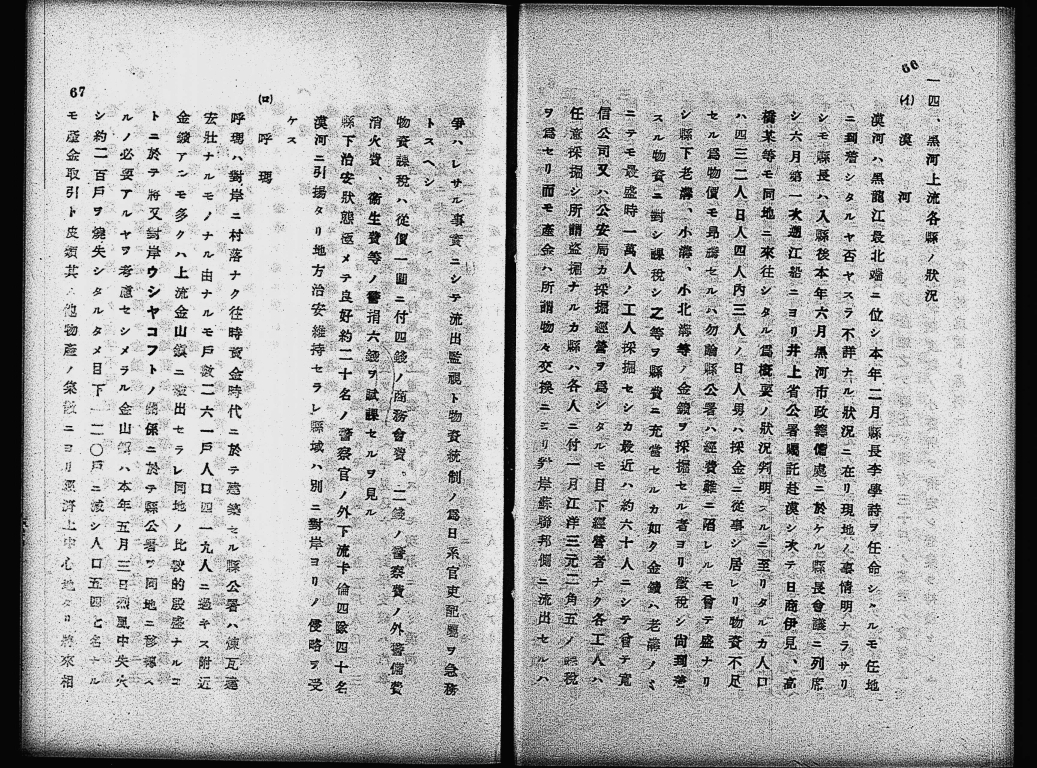 66
一四、黒河上流各縣ノ狀況
(イ) 漠河
漠河ハ黒龍江最北端ニ位シ本年二月縣長李學詩ヲ任命シタルモ任地
ニ到着シタルヤ否ヤスラ不詳ナル狀況ニ在リ現地ノ事情明ナラサリ
シモ縣長ハ入縣後本年六月黒河市政籌備處ニ於ケル縣長會議ニ列席
シ六月第一次遡江船ニヨリ井上省公署囑託赴漠シ次テ日商伊見、高
橋某等モ同地ニ來往シタル爲概要ノ狀況判明スルニ至リタルカ人口
ハ四三二人日人四人内三人ノ日人男ハ採金ニ從事シ居レリ物資不足
セル爲物價モ昂騰セルハ勿論縣公署ハ經費難ニ陷レルモ曾テ盛ナリ
シ縣下老溝、小溝、小北溝等ノ金鑛ヲ採掘セル者ヨリ徴税シ尙到着
スル物資ニ對シ課税シ之等ヲ縣費ニ充當セルカ如ク金鑛ハ老溝ノミ
ニテモ最盛時一萬人ノ工人採掘セシカ最近ハ約六十人ニシテ曾テ寬
信公司又ハ公安局カ採掘經營ヲ爲シタルモ目下經營者ナク各工人ハ
任意採掘シ所謂盜掘ナルカ縣ハ各人ニ付一月江洋三元二角五ノ課税
ヲ爲セリ而モ產金ハ所謂物々交換ニヨリ對岸蘇聯邦側ニ流出セルハ
爭ハレサル事實ニシテ流出監視ト物資統制ノ爲日系官吏配屬ヲ急務
トスヘシ
物資課税ハ從價一圓ニ付四錢ノ商務會費、二錢ノ警察費ノ外警備費
消火費、衞生費等ノ警捐六錢ヲ賦課セルヲ見ル
縣下治安狀態極メテ良好約二十名ノ警察官ノ外下流卡倫四段四十名
漠河ニ引揚タリ地方治安維持セラレ縣域ハ別ニ對岸ヨリノ侵略ヲ受
ケス
(ロ) 呼瑪
呼瑪ハ對岸ニ村落ナク往時黃金時代ニ於テ建築セル縣公署ハ煉瓦建
宏壯ナルモノナル由ナルモ戶數二六一戶人口四一九人ニ過キス附近
金鑛アンモ多クハ上流金山鎭ニ搬出セラレ同地ノ比較的殷盛ナルコ
トニ於テ將又對岸ウシヤコフトノ關係ニ於テ縣公署ヲ同地ニ移轉ス
ルノ必要アルヤヲ考慮セシメラル金山鎭ハ本年五月三日烈風中失火
シ約二百戶ヲ燒失シタルタメ目下一二〇戶ニ減シ人口五四七名ナル
モ產金取引ト皮類其ノ他物產ノ集散ニヨリ經濟上中心地タリ將來相
67